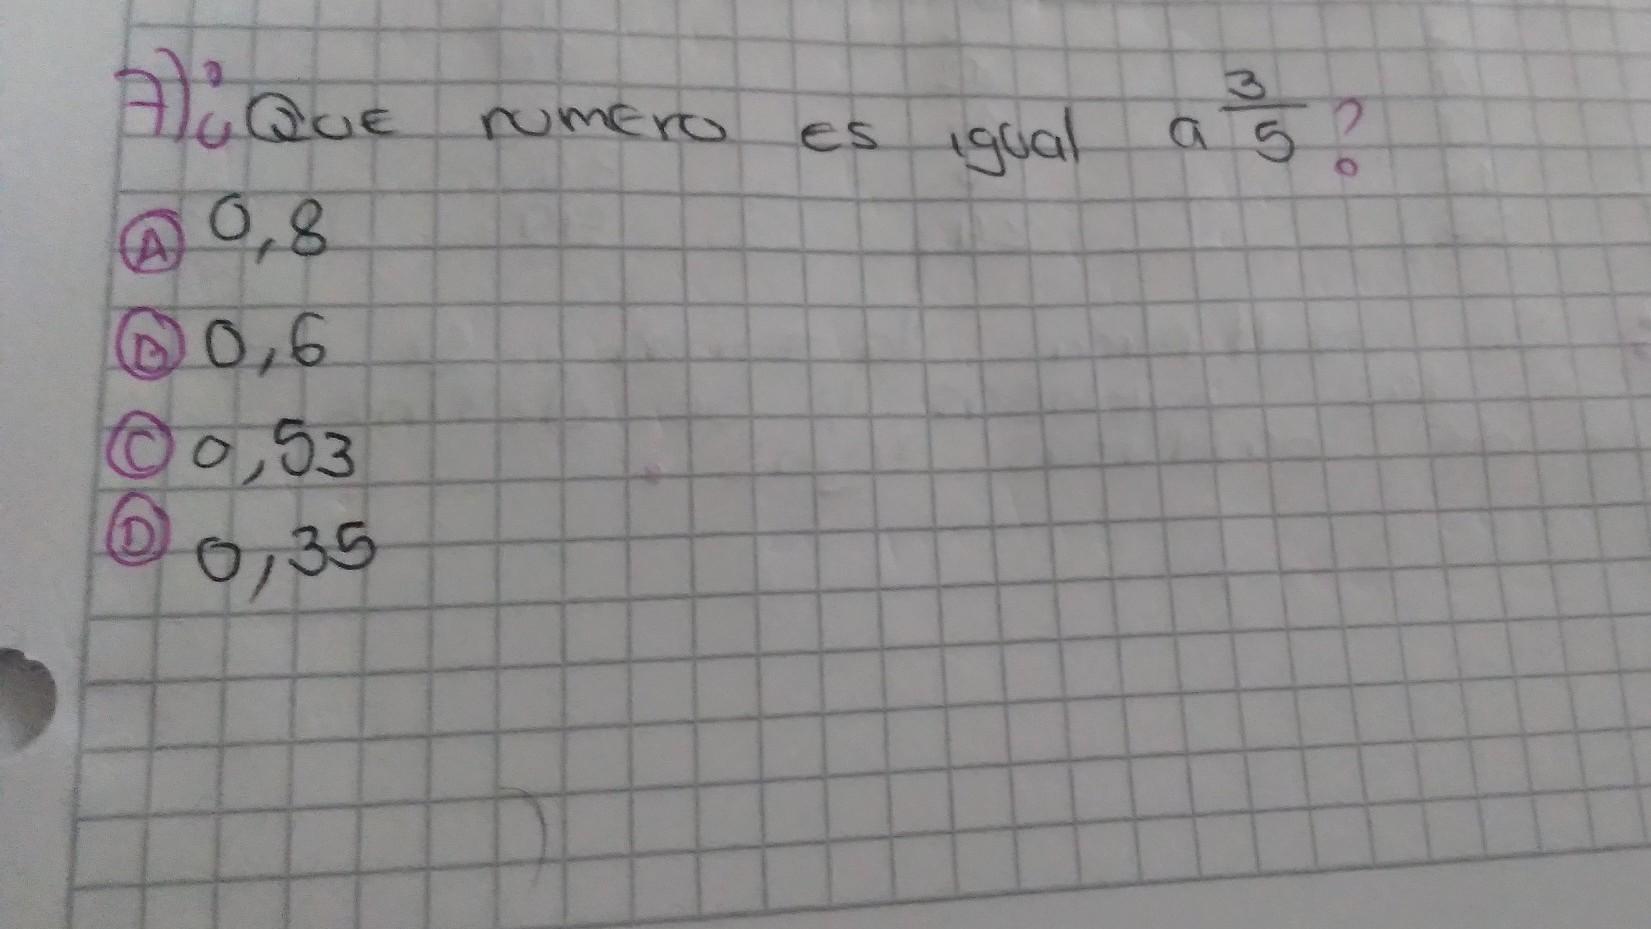 7) ¿Que numero es igual a 3/5?
A 0,8
B 0,6
C 0,53
D 0,35